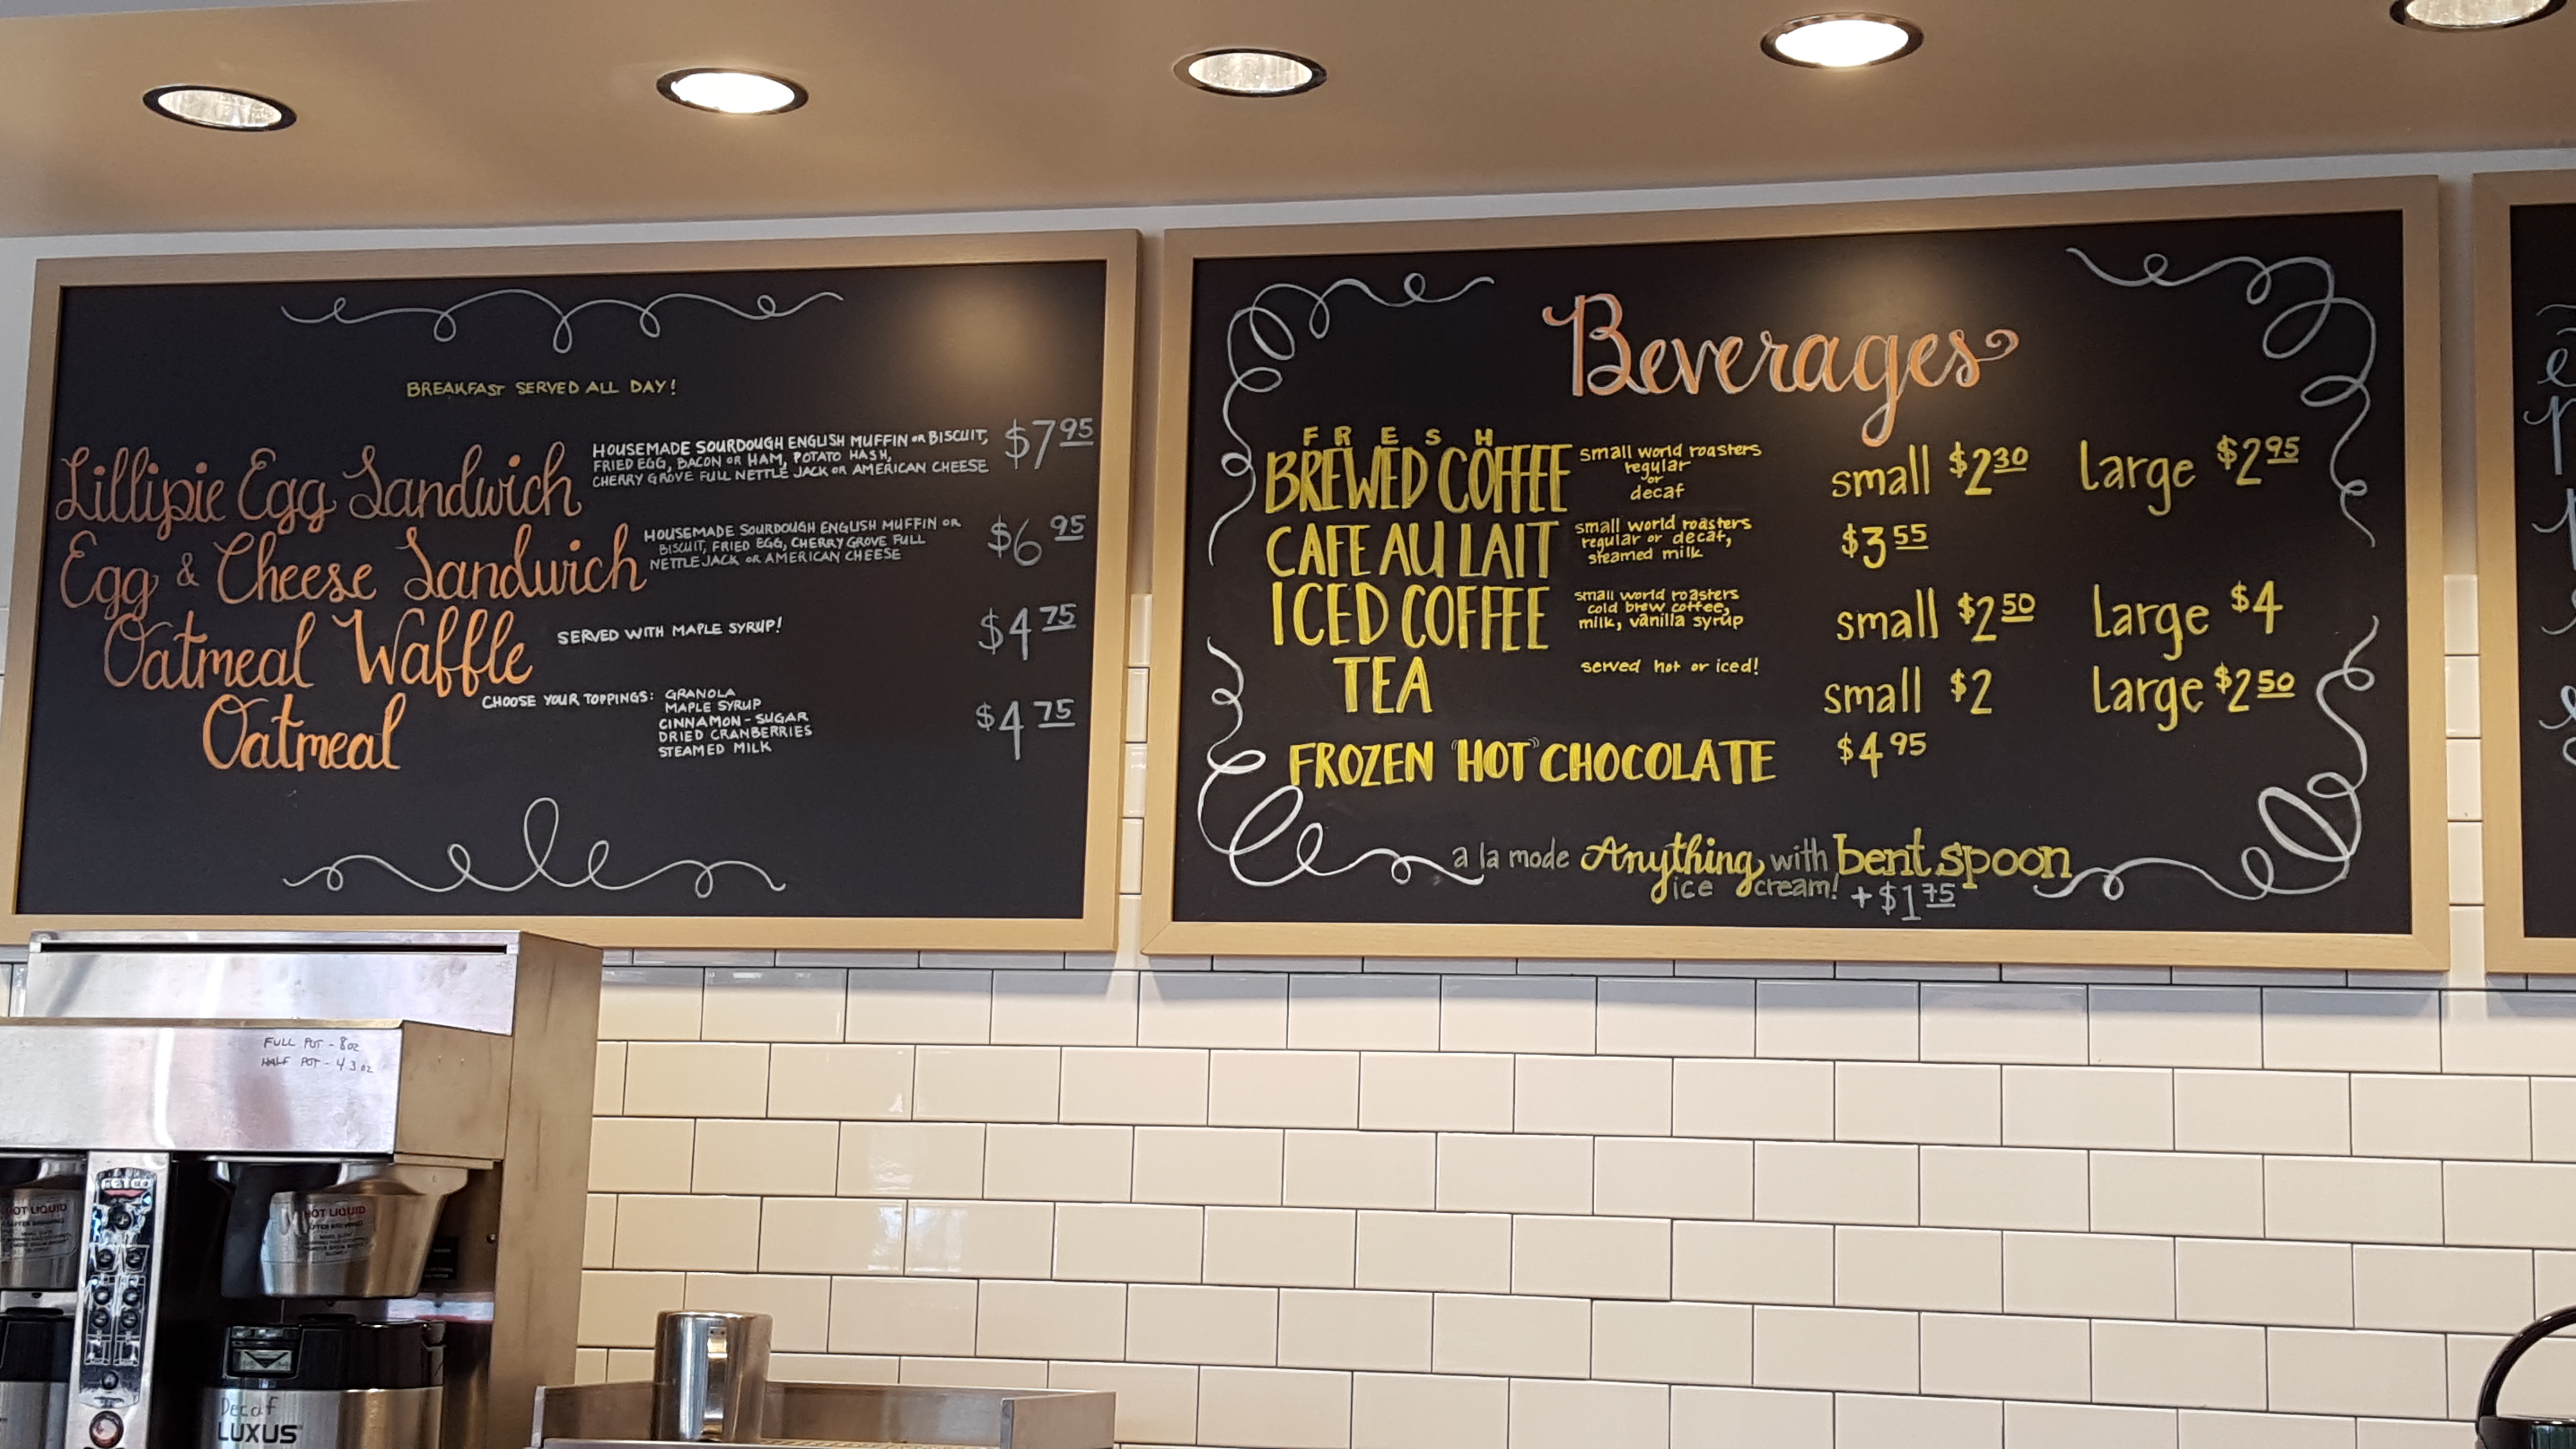 BREAKFAST SERVED ALL DAY!
Lillipie Egg Sandwich
HOUSEMADE SOURDOUGH ENGLISH MUFFIN OR BISCUIT,
FRIED EGG, BACON OR HAM, POTATO HASH,
CHERRY GROVE FULL NETTLE JACK OR AMERICAN CHEESE
$7 95
Egg & Cheese Sandwich
HOUSEMADE SOURDOUGH ENGLISH MUFFIN OR
BISCUIT, FRIED EGG, CHERRY GROVE FULL
NETTLE JACK OR AMERICAN CHEESE
$6 95
Oatmeal Waffle
SERVED WITH MAPLE SYRUP!
$4 75
Oatmeal
CHOOSE YOUR TOPPINGS: GRANOLA
MAPLE SYRUP
CINNAMON-SUGAR
DRIED CRANBERRIES
STEAMED MILK
$4 75
Beverages
FRESH
BREWED COFFEE
small world roasters
regular
or
decaf
small $2 30 Large $2 95
CAFE AU LAIT
small world roasters
regular or decaf,
steamed milk
$3 55
ICED COFFEE
small world roasters
cold brew coffee,
milk, vanilla syrup
small $2 50 Large $4
TEA
served hot or iced!
small $2 Large $2 50
FROZEN "HOT" CHOCOLATE $4 95
a la mode Anything with bent spoon
ice cream! + $1 75
FULL POT - 8oz
HALF POT - 4 3 oz
HOT LIQUID
HOT LIQUID
Decaf
LUXUS